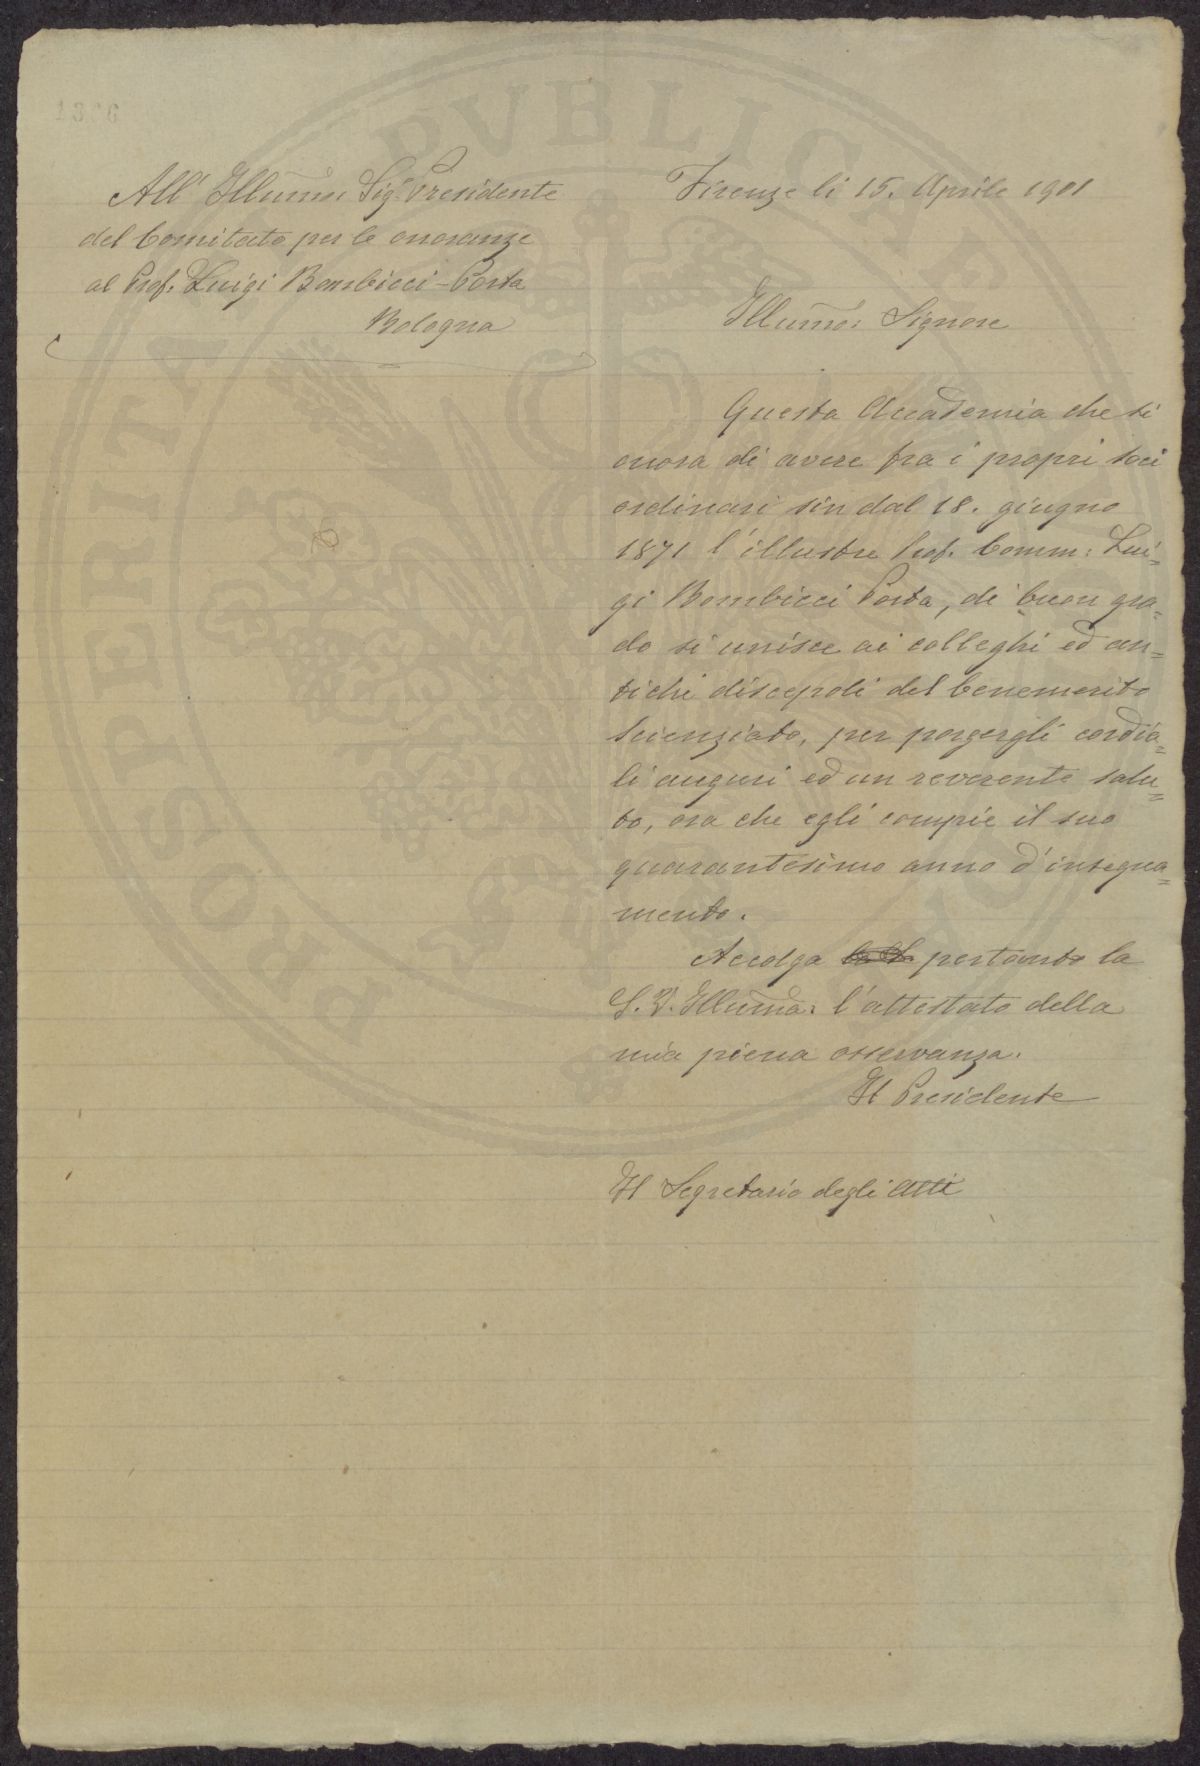 1306
All' Illumo: Sigr. Presidente
del Comitato per le onoranze
al Prof. Luigi Bombicci-Porta
Bologna
Firenze li 15. Aprile 1901
Illumo: Signore
Questa Accademia che si
onora di avere fra i propri soci
ordinari sin dal 18. giugno
1871 l'illustre Prof. Comm: Lui=
gi Bombicci Porta, di buon gra=
do si unisce ai colleghi ed an=
tichi discepoli del benemerito
Scienziato, per porgergli cordia=
li auguri ed un reverente salu=
to, ora che egli compie il suo
quarantesimo anno d'insegna=
mento.
Accolga pertanto la
S. V. Illuma: l'attestato della
mia piena osservanza.
Il Presidente
Il Segretario degli Atti
PROSPERITATI PVBLICAE